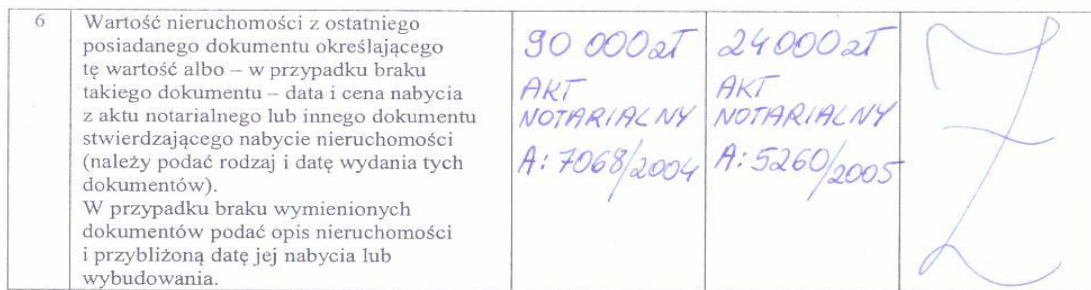 6
Wartość nieruchomości z ostatniego
posiadanego dokumentu określającego
tę wartość albo – w przypadku braku
takiego dokumentu – data i cena nabycia
z aktu notarialnego lub innego dokumentu
stwierdzającego nabycie nieruchomości
(należy podać rodzaj i datę wydania tych
dokumentów).
W przypadku braku wymienionych
dokumentów podać opis nieruchomości
i przybliżoną datę jej nabycia lub
wybudowania.
90 000 zł
AKT
NOTARIALNY
A: 7068/2004
24 000 zł
AKT
NOTARIALNY
A: 5260/2005